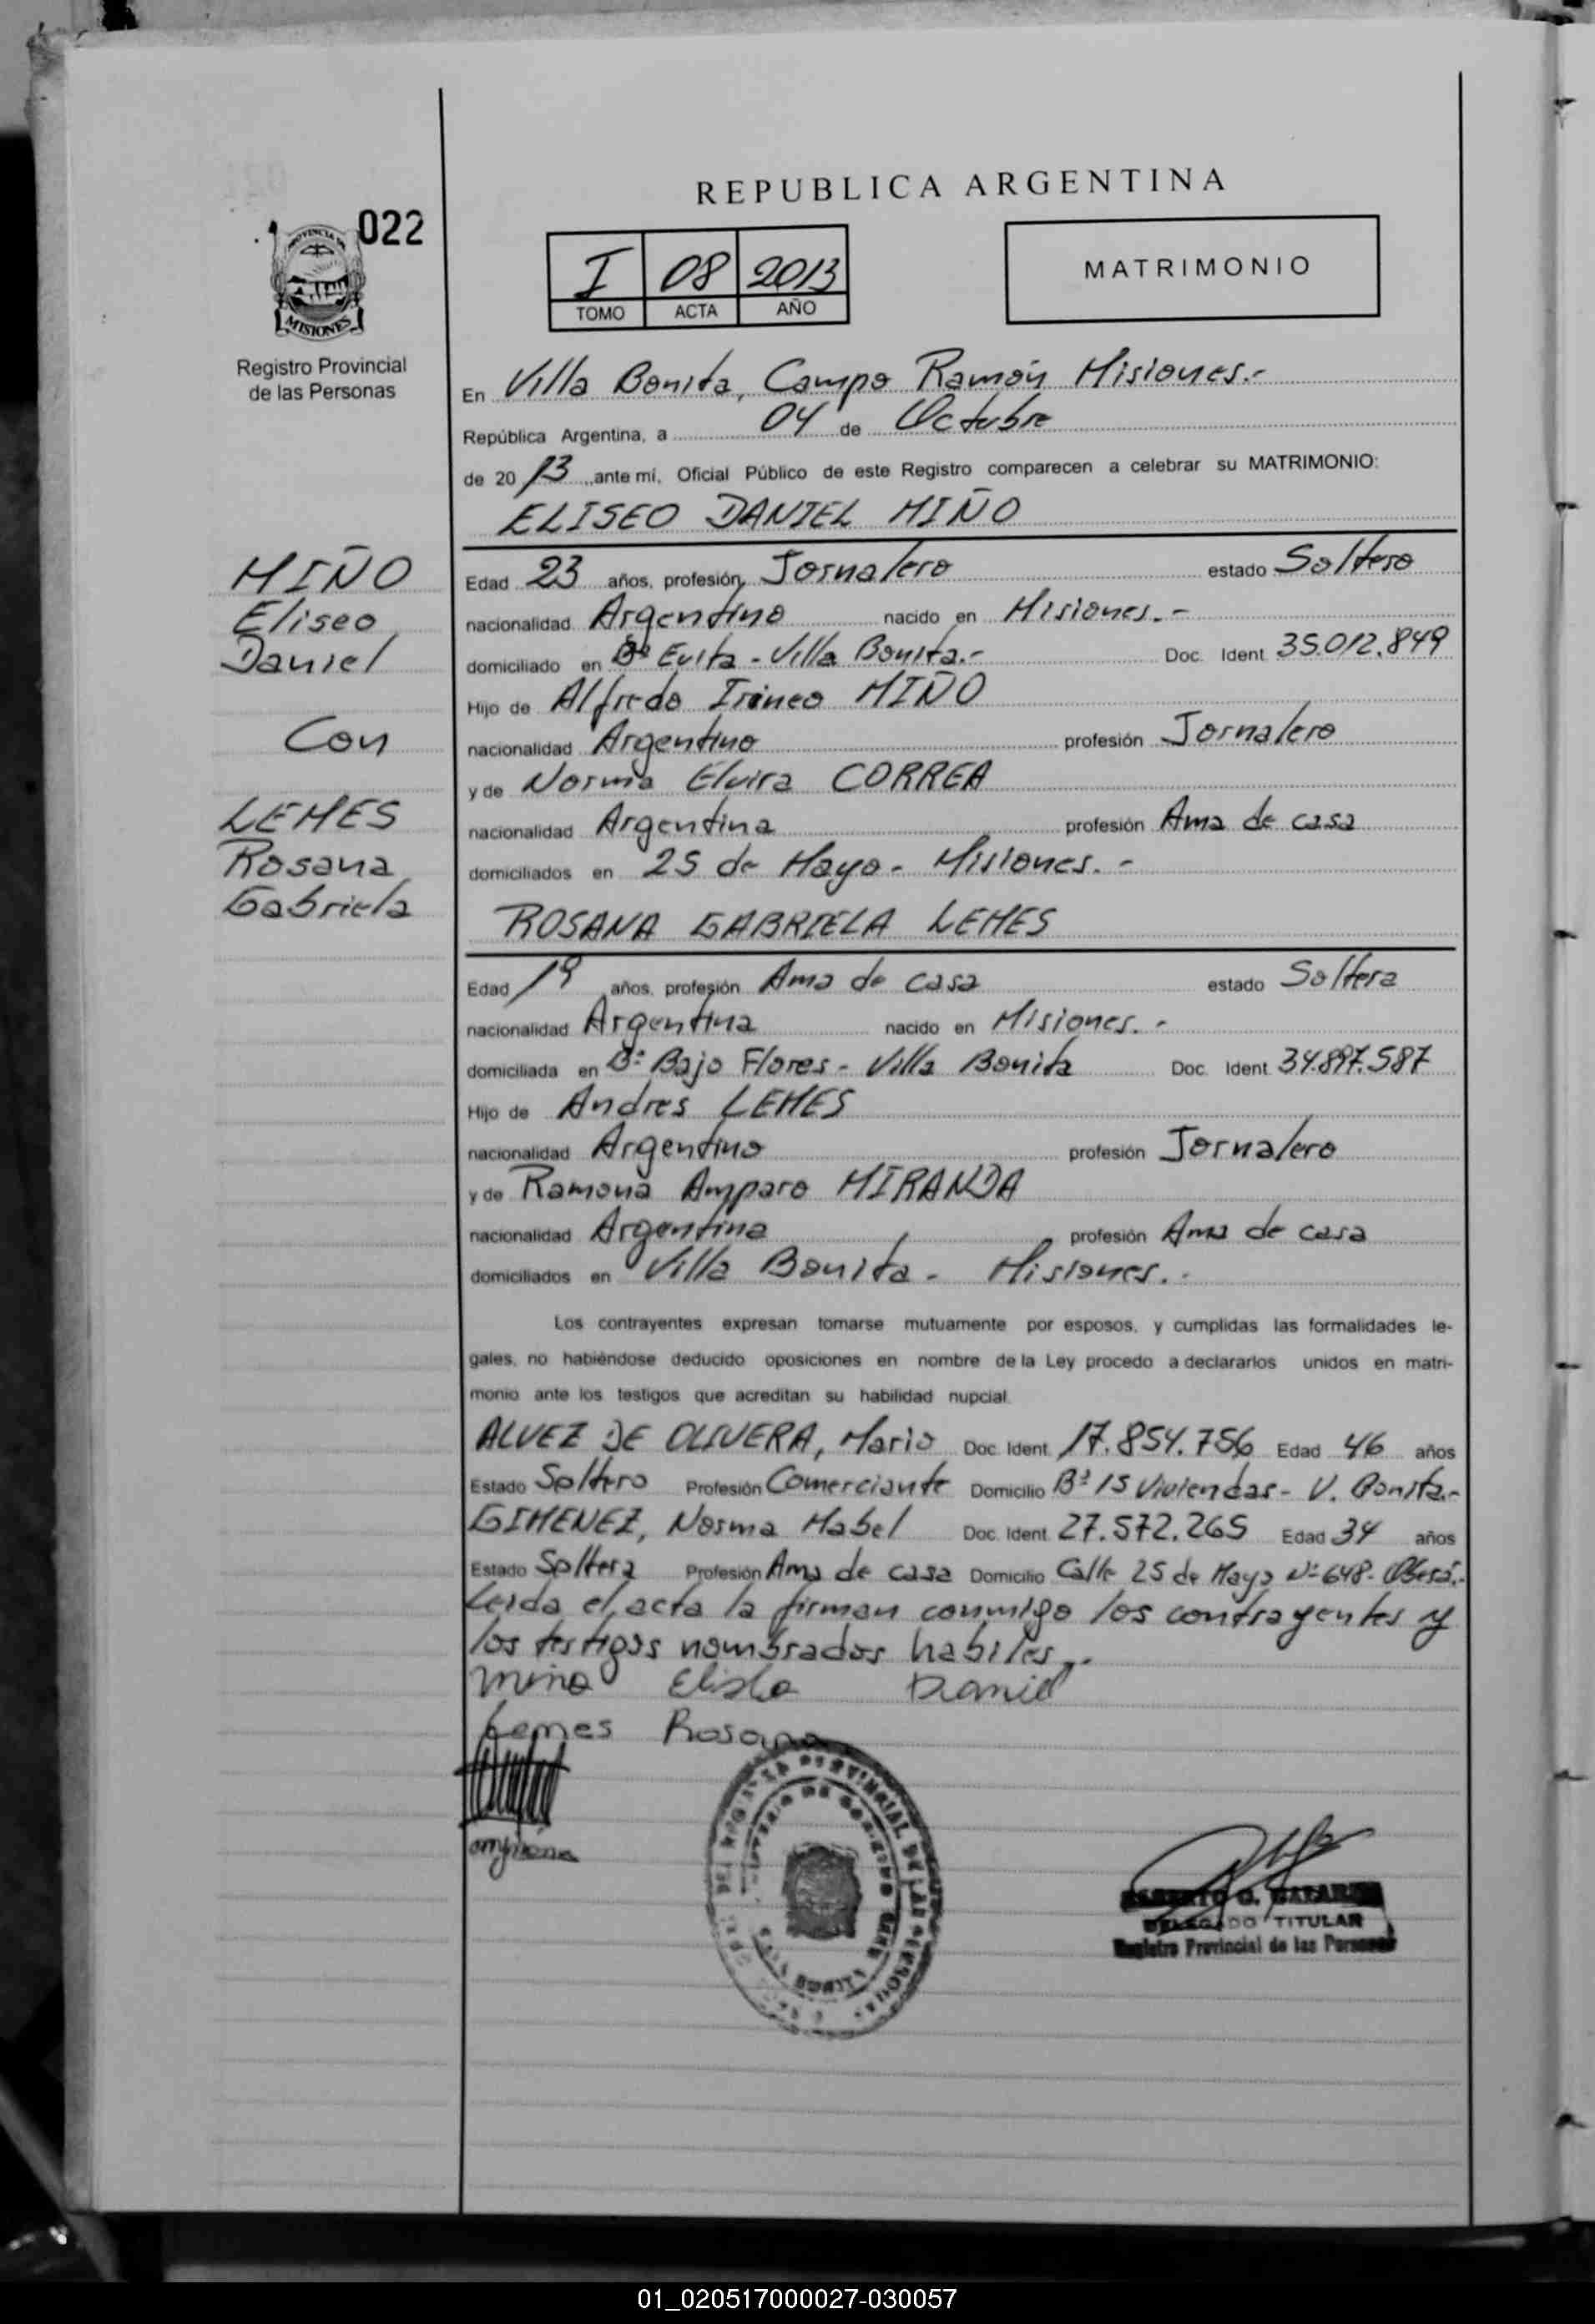 REPUBLICA ARGENTINA
022
PROVINCIA DE
MISIONES
Registro Provincial
de las Personas
I 08 2013
TOMO ACTA AÑO
MATRIMONIO
En Villa Bonita, Campo Ramón Misiones.-
República Argentina, a 04 de Octubre
de 2013 ante mi, Oficial Público de este Registro comparecen a celebrar su MATRIMONIO:
ELISEO DANIEL MIÑO
MIÑO
Eliseo
Daniel
Con
LEMES
Rosana
Gabriela
Edad 23 años, profesión Jornalero estado Soltero
nacionalidad Argentino nacido en Misiones.-
domiciliado en Bº Evita - Villa Bonita.- Doc. Ident. 35.012.849
Hijo de Alfredo Irineo MIÑO
nacionalidad Argentino profesión Jornalero
y de Norma Elvira CORREA
nacionalidad Argentina profesión Ama de casa
domiciliados en 25 de Mayo - Misiones.-
ROSANA GABRIELA LEMES
Edad 19 años, profesión Ama de casa estado Soltera
nacionalidad Argentina nacido en Misiones.-
domiciliada en Bº Bajo Flores - Villa Bonita Doc. Ident. 34.897.587
Hijo de Andres LEMES
nacionalidad Argentino profesión Jornalero
y de Ramona Amparo MIRANDA
nacionalidad Argentina profesión Ama de casa
domiciliados en Villa Bonita - Misiones.-
Los contrayentes expresan tomarse mutuamente por esposos, y cumplidas las formalidades le-
gales, no habiéndose deducido oposiciones en nombre de la Ley procedo a declararlos unidos en matri-
monio ante los testigos que acreditan su habilidad nupcial.
ALVEZ DE OLIVERA, Mario Doc. Ident. 17.854.756 Edad 46 años
Estado Soltero Profesión Comerciante Domicilio Bº 15 Viviendas - V. Bonita.-
GIMENEZ, Norma Mabel Doc. Ident. 27.572.265 Edad 34 años
Estado Soltera Profesión Ama de casa Domicilio Calle 25 de Mayo Nº 648. Oberá.-
Leida el acta la firman conmigo los contrayentes y
los testigos nombrados habiles.-
Miño Eliseo Daniel
Lemes Rosana
DELEGADO TITULAR
Registro Provincial de las Personas
01_020517000027-030057